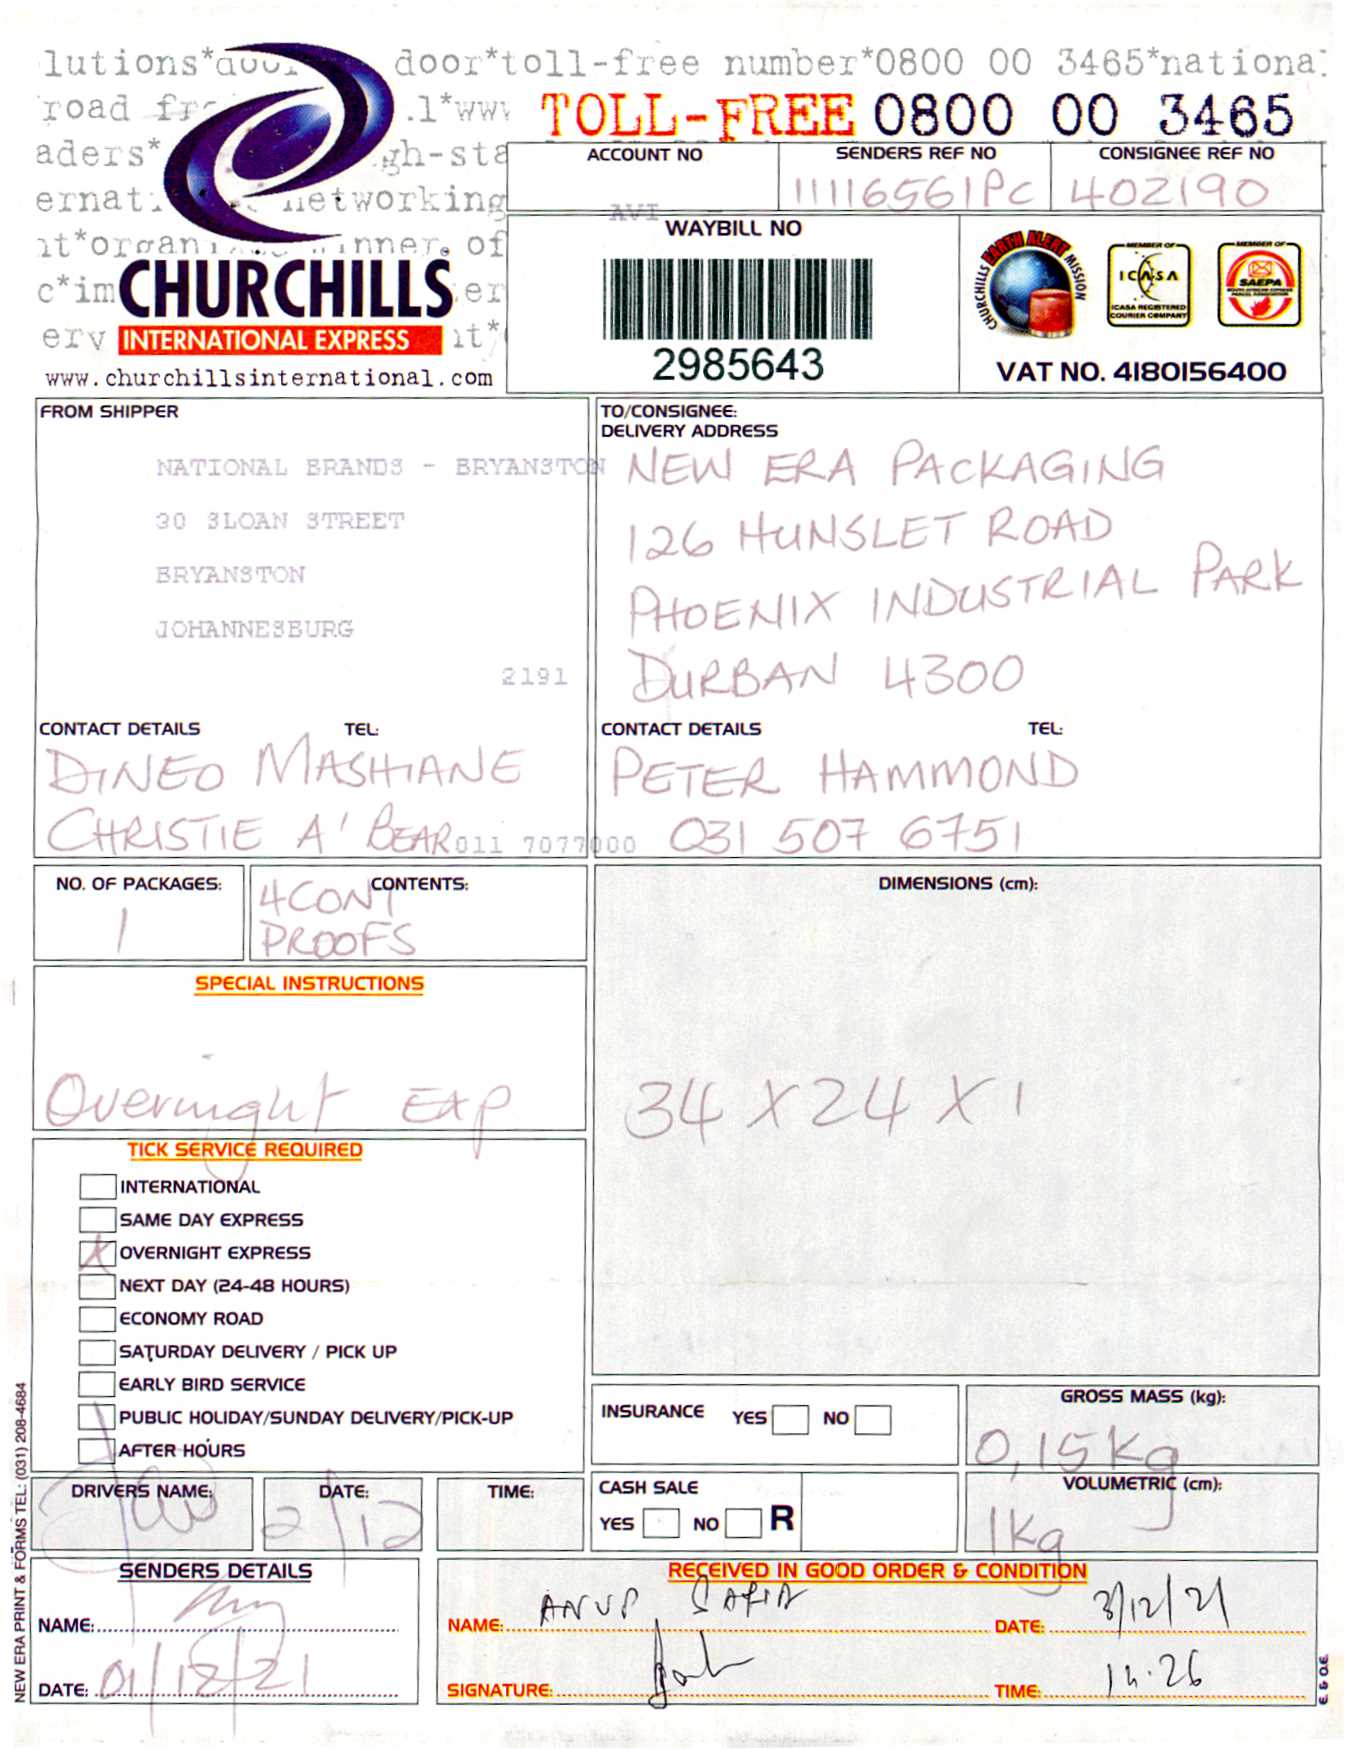 lutions*door door*toll-free number*0800 00 3465*nationa
road .l*www TOLL-FREE 0800 00 3465
aders* gh-sta
ACCOUNT NO SENDERS REF NO CONSIGNEE REF NO
11116561PC 402190
ernat networking
AVI
WAYBILL NO
it*organi inner. of
c*im er
CHURCHILLS
erv it*
INTERNATIONAL EXPRESS
www.churchillsinternational.com
2985643
CHURCHILLS EARTH ALERT MISSION
MEMBER OF
ICASA
ICASA REGISTERED
COURIER COMPANY
MEMBER OF
SAEPA
VAT NO. 4180156400
FROM SHIPPER
NATIONAL BRANDS - BRYANSTON
30 SLOAN STREET
BRYANSTON
JOHANNESBURG
2191
CONTACT DETAILS TEL:
DINEO MASHIANE
CHRISTIE A' BEAR 011 7077000
TO/CONSIGNEE:
DELIVERY ADDRESS
NEW ERA PACKAGING
126 HUNSLET ROAD
PHOENIX INDUSTRIAL PARK
DURBAN 4300
CONTACT DETAILS TEL:
PETER HAMMOND
031 507 6751
NO. OF PACKAGES:
1
CONTENTS:
4 CONT
PROOFS
DIMENSIONS (cm):
34 X 24 X 1
SPECIAL INSTRUCTIONS
Overnight Exp
TICK SERVICE REQUIRED
INTERNATIONAL
SAME DAY EXPRESS
X OVERNIGHT EXPRESS
NEXT DAY (24-48 HOURS)
ECONOMY ROAD
SATURDAY DELIVERY / PICK UP
EARLY BIRD SERVICE
PUBLIC HOLIDAY/SUNDAY DELIVERY/PICK-UP
AFTER HOURS
INSURANCE YES NO
GROSS MASS (kg):
0,15kg
DRIVERS NAME:
DATE:
2/12
TIME:
CASH SALE
YES NO R
VOLUMETRIC (cm):
1kg
SENDERS DETAILS
NAME:
DATE: 01/12/21
RECEIVED IN GOOD ORDER & CONDITION
NAME: ANUP DATE: 3/12/21
SIGNATURE: TIME: 14.26
E & O.E.
NEW ERA PRINT & FORMS TEL: (031) 208-4684